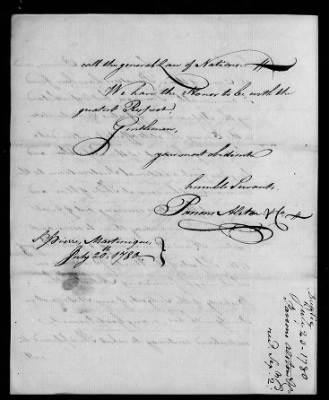 call the general Law of Nations.
We have the Honor to be with the
greatest Respect.
Gentlemen,
your most obedient
humble Servant,
Parsons Alston & Co
St Pierre, Martinique,
July 20th 1780
July 20. 1780
Parsons Alston & Co